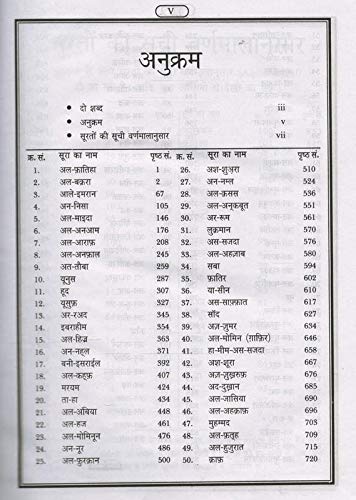 V
अनुक्रम
• दो शब्द iii
• अनुक्रम v
• सूरतों की सूची वर्णमालानुसार vii
क्र. सं. सूरा का नाम पृष्ठ सं. क्र. सं. सूरा का नाम पृष्ठ सं.
1. अल-फ़ातिहा 1 26. अश-शुअरा 510
2. अल-बक़रा 2 27. अन-नम्ल 524
3. आले-इमरान 67 28. अल-क़सस 536
4. अन-निसा 105 29. अल-अनकबूत 551
5. अल-माइदा 146 30. अर-रूम 561
6. अल-अनआम 176 31. लुक़मान 570
7. अल-आराफ़ 208 32. अस-सजदा 576
8. अल-अनफ़ाल 245 33. अल-अहज़ाब 580
9. अल-तौबा 259 34. सबा 594
10. यूनुस 287 35. फ़ातिर 602
11. हूद 307 36. या-सीन 610
12. यूसुफ़ 327 37. अस-साफ़्फ़ात 617
13. अर-रअद 345 38. सॉद 627
14. इबराहीम 354 39. अज़-ज़ुमर 634
15. अल-हिज्र 363 40. अल-मोमिन (ग़ाफ़िर) 646
16. अन-नहल 371 41. हा-मीम-अस-सजदा 658
17. बनी-इसराईल 392 42. अश-शूरा 667
18. अल-कहफ़ 407 43. अज़-ज़ुख़रुफ़ 676
19. मरयम 424 44. अद-दुख़ान 685
20. ता-हा 434 45. अल-जासिया 690
21. अल-अंबिया 448 46. अल-अहक़ाफ़ 696
22. अल-हज 461 47. मुहम्मद 703
23. अल-मोमिनून 476 48. अल-फ़तह 709
24. अन-नूर 486 49. अल-हुजुरात 715
25. अल-फ़ुरक़ान 500 50. क़ाफ़ 720